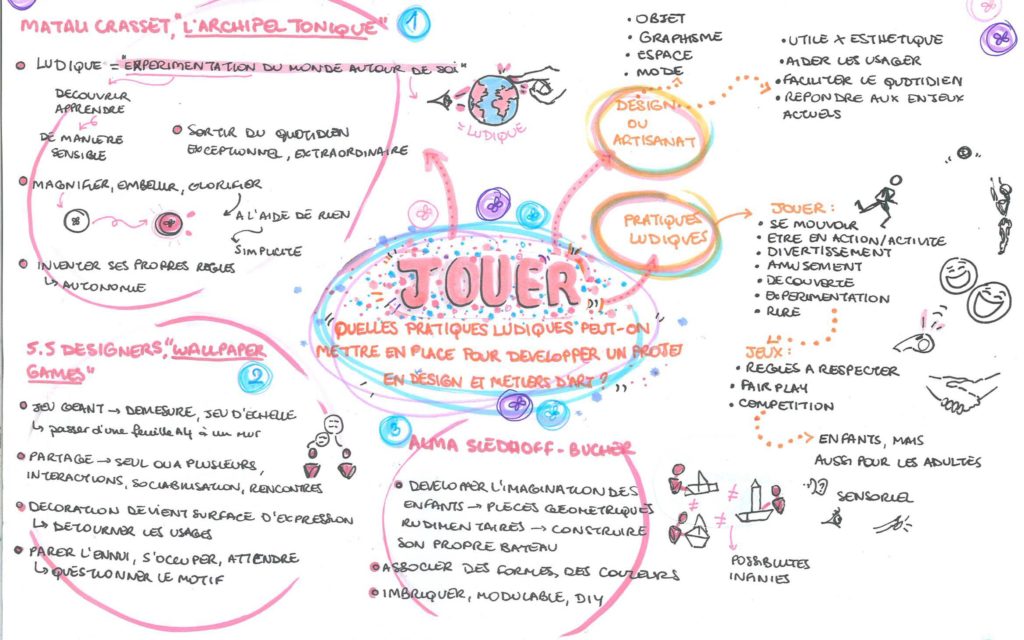 MATALI CRASSET, "L'ARCHIPEL TONIQUE"
1
LUDIQUE = "EXPERIMENTATION DU MONDE AUTOUR DE SOI"
DECOUVRIR
APPRENDRE
DE MANIÈRE
SENSIBLE
= LUDIQUE
SORTIR DU QUOTIDIEN
EXCEPTIONNEL, EXTRAORDINAIRE
MAGNIFIER, EMBELLIR, GLORIFIER
A L'AIDE DE RIEN
SIMPLICITE
INVENTER SES PROPRES REGLES
↳ AUTONOMIE
• OBJET
• GRAPHISME
• ESPACE
• MODE
DESIGN
OU
ARTISANAT
• UTILE X ESTHETIQUE
• AIDER LES USAGER
• FACILITER LE QUOTIDIEN
• REPONDRE AUX ENJEUX
ACTUELS
PRATIQUES
LUDIQUES
JOUER :
• SE MOUVOIR
• ETRE EN ACTION/ACTIVITE
• DIVERTISSEMENT
• AMUSEMENT
• DECOUVERTE
• EXPERIMENTATION
• RIRE
JOUER
QUELLES PRATIQUES LUDIQUES PEUT-ON
METTRE EN PLACE POUR DEVELOPPER UN PROJET
EN DESIGN ET METIERS D'ART ?
JEUX :
• REGLES A RESPECTER
• FAIR PLAY
• COMPETITION
ENFANTS, MAIS
AUSSI POUR LES ADULTES
SENSORIEL
5.5 DESIGNERS, "WALLPAPER
GAMES"
2
JEU GEANT → DEMESURE, JEU D'ECHELLE
↳ passer d'une feuille A4 à un mur
PARTAGE → SEUL OU A PLUSIEURS,
INTERACTIONS, SOCIABILISATION, RENCONTRES
DECORATION DEVIENT SURFACE D'EXPRESSION
↳ DETOURNER LES USAGES
PARER L'ENNUI, S'OCCUPER, ATTENDRE
↳ QUESTIONNER LE MOTIF
3
ALMA SIEDHOFF-BUCHER
DEVELOPPER L'IMAGINATION DES
ENFANTS → PIECES GEOMETRIQUES
RUDIMENTAIRES → CONSTRUIRE
SON PROPRE BATEAU
ASSOCIER DES FORMES, DES COULEURS
IMBRIQUER, MODULABLE, DIY
≠
≠
≠
≠
POSSIBILITES
INFINIES